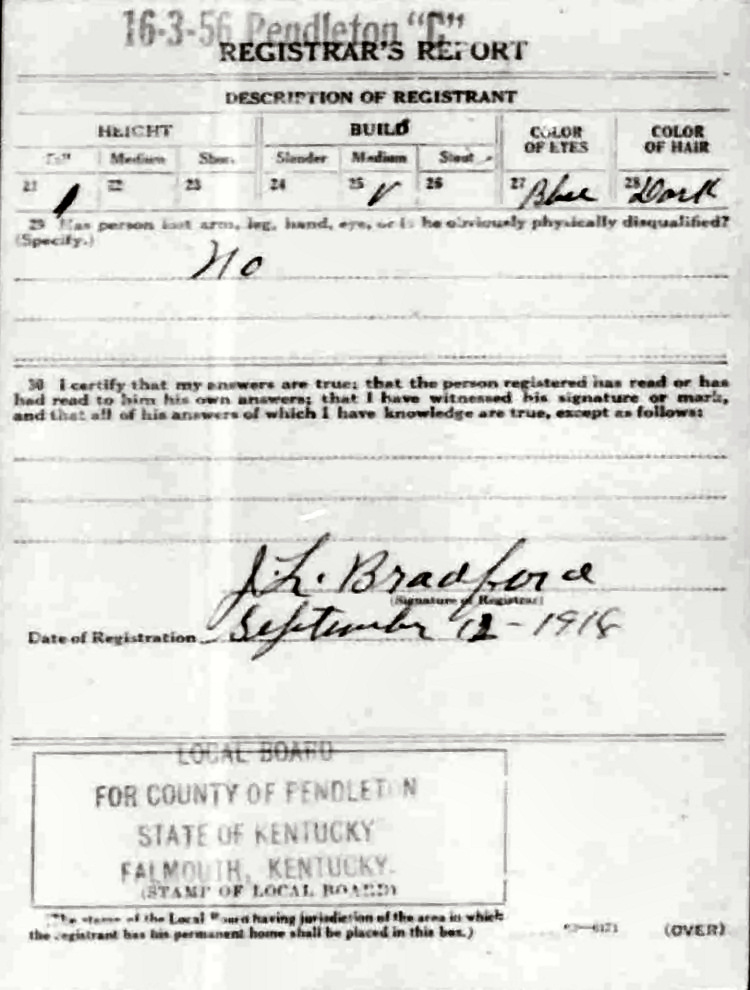 16-3-56 Pendleton "C"
REGISTRAR'S REPORT
DESCRIPTION OF REGISTRANT
HEIGHT BUILD COLOR OF EYES COLOR OF HAIR
Tall Medium Short Slender Medium Stout
21 / 22 23 24 25 ✓ 26 27 Blue 28 Dark
29 Has person lost arm, leg, hand, eye, or is he obviously physically disqualified?
(Specify.)
No
30 I certify that my answers are true; that the person registered has read or has
had read to him his own answers; that I have witnessed his signature or mark,
and that all of his answers of which I have knowledge are true, except as follows:
J. L. Bradford
(Signature of Registrar)
Date of Registration September 12-1918
LOCAL BOARD
FOR COUNTY OF PENDLETON
STATE OF KENTUCKY
FALMOUTH, KENTUCKY.
(STAMP OF LOCAL BOARD)
(The stamp of the Local Board having jurisdiction of the area in which
the registrant has his permanent home shall be placed in this box.)
(OVER)